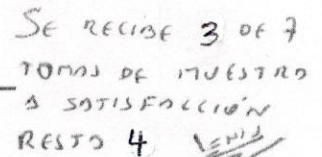 SE RECIBE 3 DE 7
TOMAS DE MUESTRA
A SATISFACCIÓN
RESTA 4